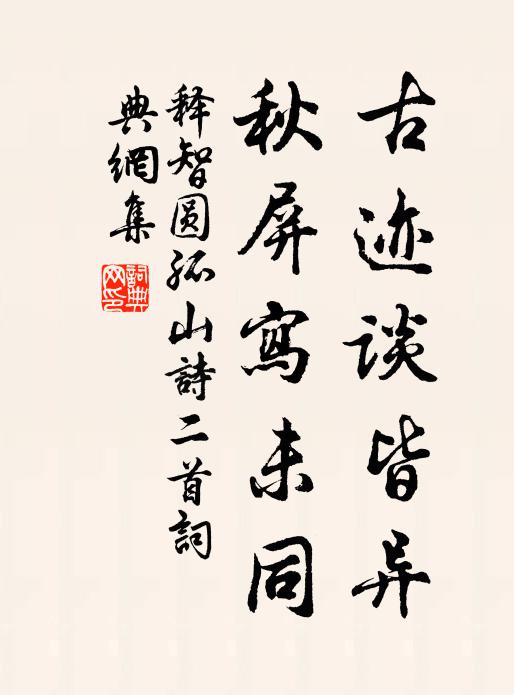 古迹谈皆异
秋屏寫未同
释智圆孤山詩二首詞
典網集
詞典網印